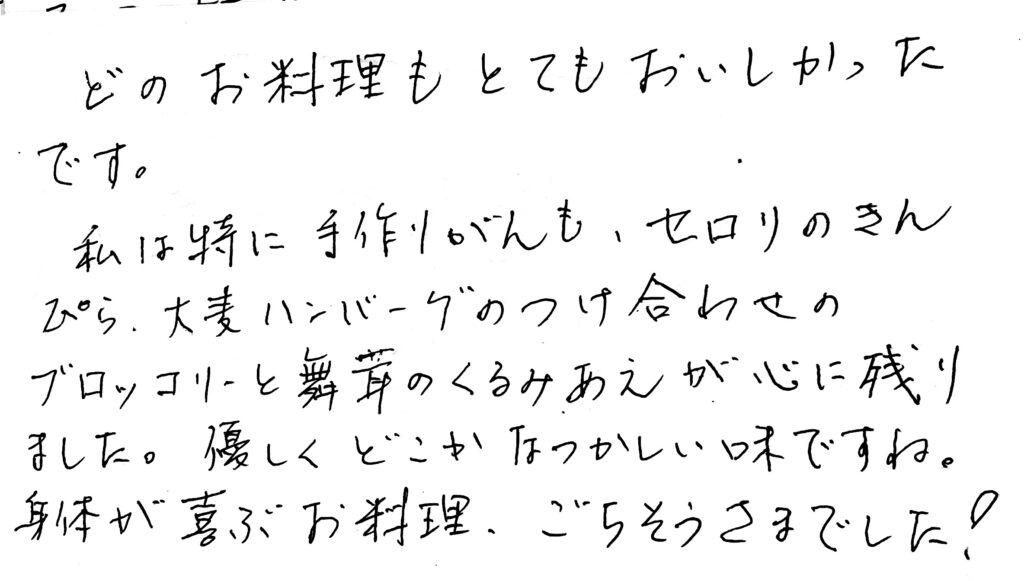 どのお料理もとてもおいしかった
です。
私は特に手作りがんも、セロリのきん
ぴら、大麦ハンバーグのつけ合わせの
ブロッコリーと舞茸のくるみあえが心に残り
ました。優しくどこかなつかしい味ですね。
身体が喜ぶお料理、ごちそうさまでした!